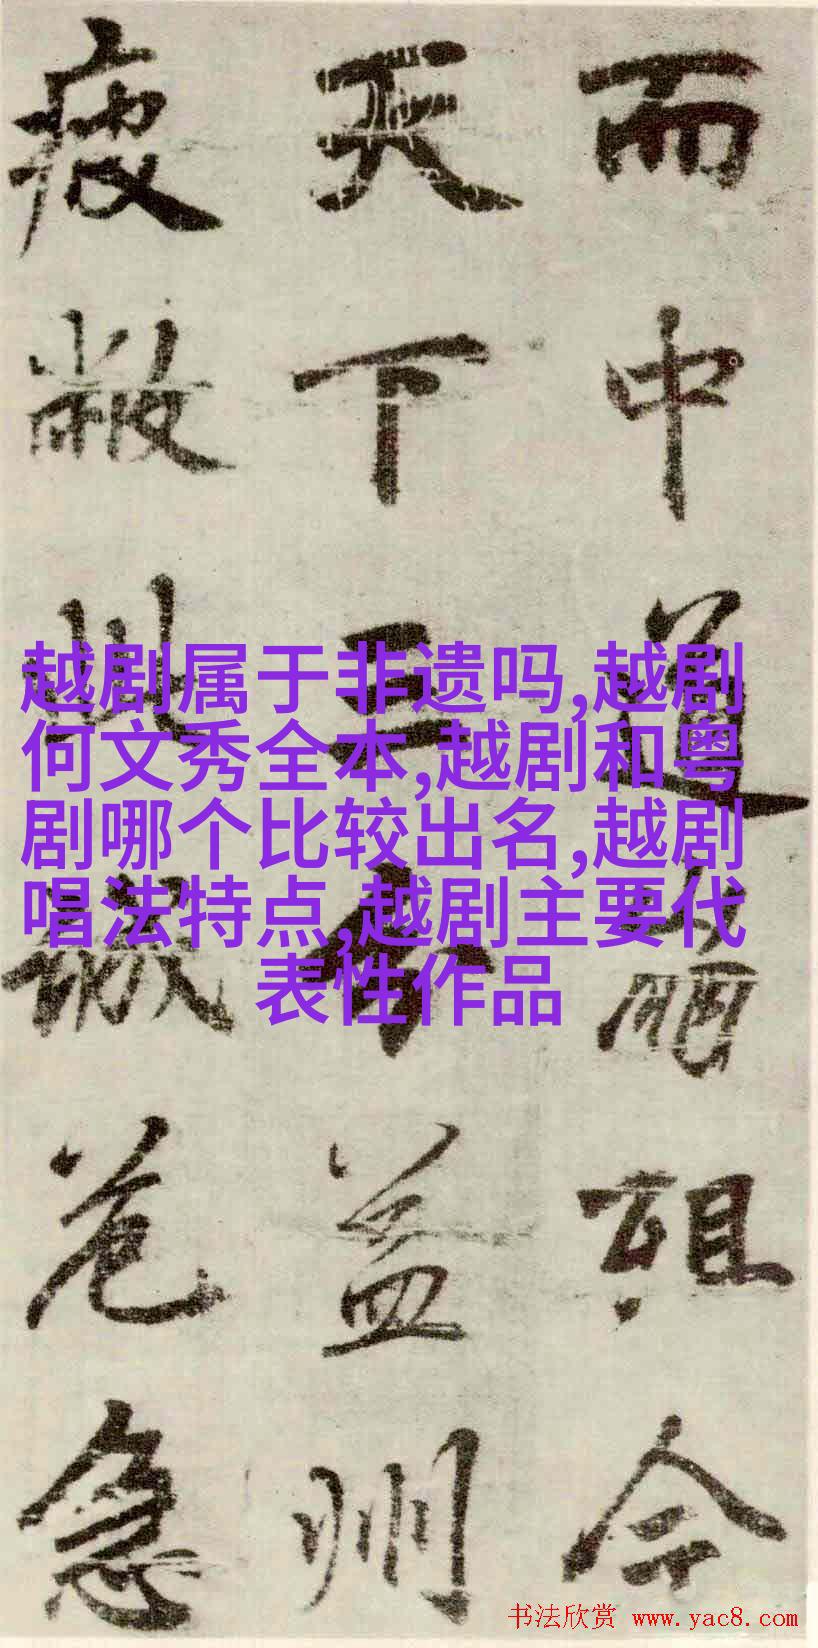 而中道崩殂今
天下三分益州
疲敝此誠危急
越剧属于非遗吗,越剧
何文秀全本,越剧和粤
剧哪个比较出名,越剧
唱法特点,越剧主要代
表性作品
书法欣赏 www.yac8.com